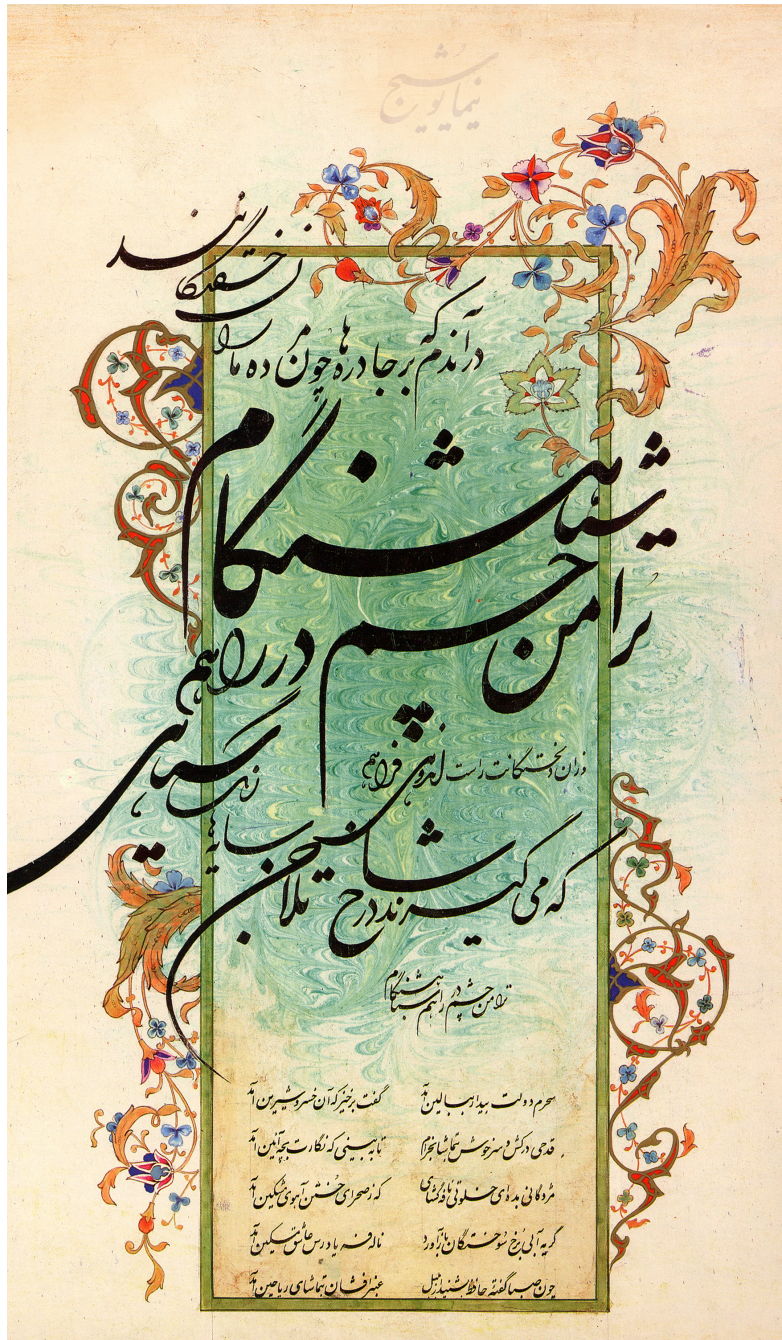 نیما یوشیج
درآندم که برجا دره ها چون مرده ماران خفتگانند
شباهنگام
ترا من چشم در راهم
وزان دلخستگانت راست اندوهی فراهم
که می گیرند در شاخ تلاجن سایه ها رنگ سیاهی
ترا من چشم در راهم شباهنگام
سحرم دولت بیدار ببالین آمد گفت برخیز که آن خسرو شیرین آمد
قدحی درکش و سرخوش بتماشا بخرام تا به بینی که نگارت بچه آئین آمد
مژدگانی بده ای خلوتی نافه گشای که ز صحرای ختن آهوی مشکین آمد
گریه آبی برخ سوختگان بازآورد ناله فریادرس عاشق مسکین آمد
چون صبا گفته حافظ بشنید از بلبل عنبرافشان بتماشای ریاحین آمد